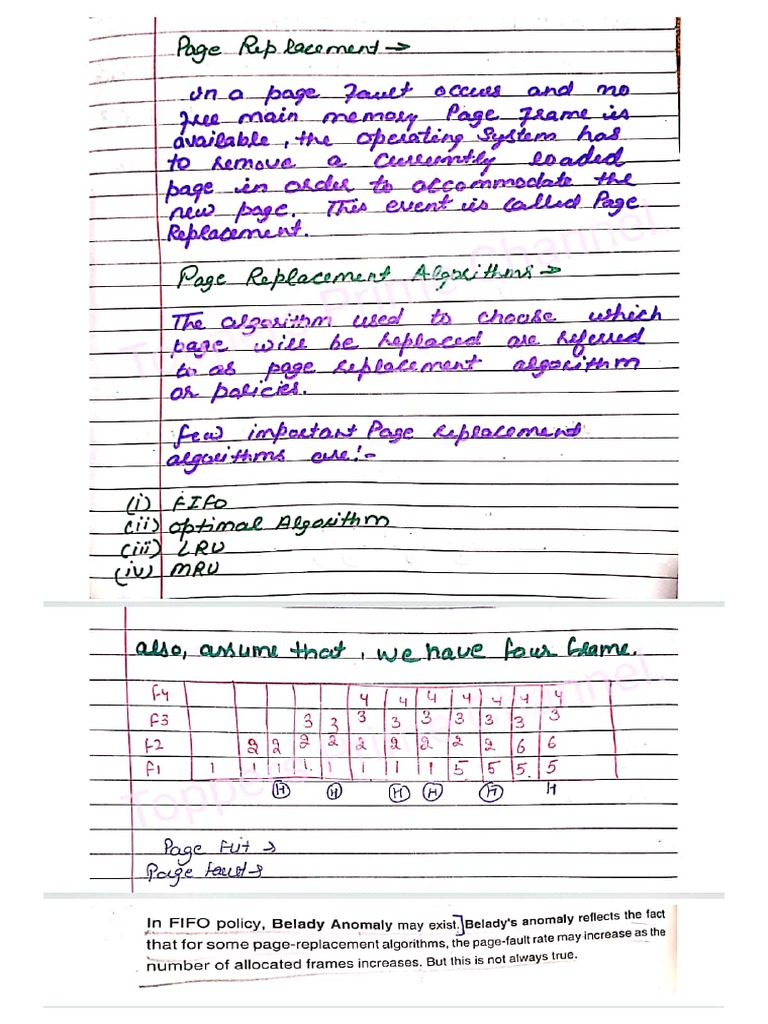 Page Replacement →
In a page fault occurs and no
free main memory Page Frame is
available, the operating System has
to remove a currently loaded
page in order to accommodate the
new page. This event is called Page
Replacement.
Page Replacement Algorithms →
The algorithm used to choose which
page will be replaced are referred
to as page replacement algorithm
or policies.
few important Page replacement
algorithms are:-
(i) FIFO
(ii) optimal Algorithm
(iii) LRU
(iv) MRU
also, assume that, we have four frame.
F4 4 4 4 4 4 4 4
F3 3 3 3 3 3 3 3 3 3
F2 2 2 2 2 2 2 2 2 2 6 6
F1 1 1 1 1 1 1 1 1 5 5 5 5
H H H H H H
Page Hit →
Page fault →
In FIFO policy, Belady Anomaly may exist.] Belady's anomaly reflects the fact
that for some page-replacement algorithms, the page-fault rate may increase as the
number of allocated frames increases. But this is not always true.
Toppers Prime Channel
Toppers Prime Channel